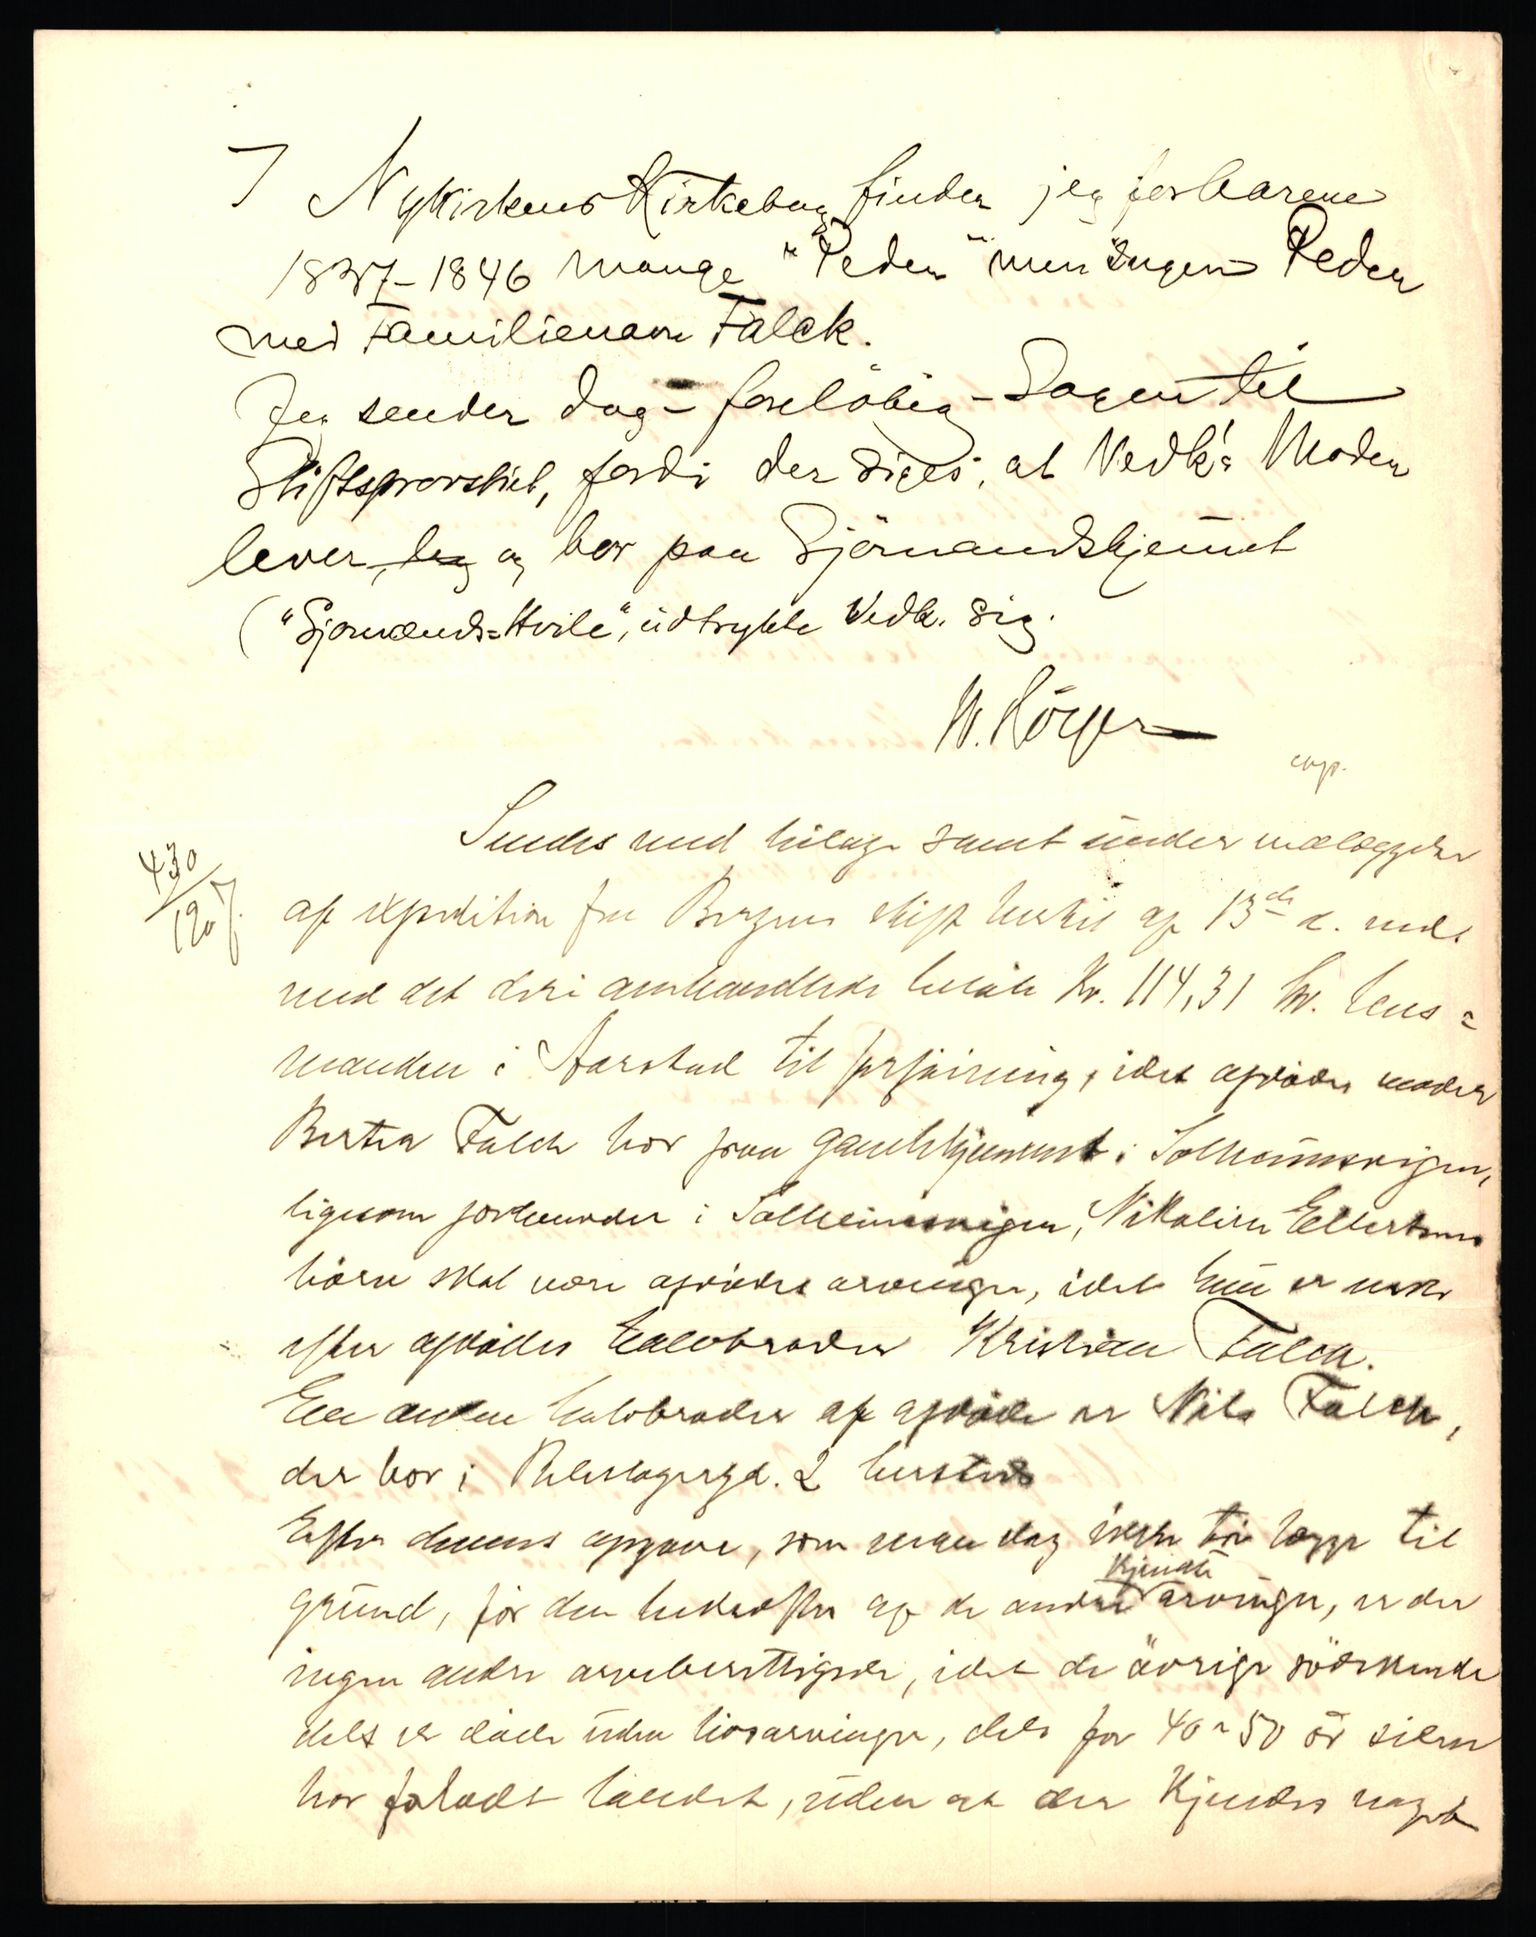 I Nykirkens Kirkebog finder jeg for Aarene
1837-1846 mange "Peder" men Ingen Peder
med Familienavn Falck.
Jeg sender dog - foreløbig - Sagen til
Stiftsprovstiet, fordi der siges, at Vedk's Moder
lever, og bor paa Sjömandshjemmet
("Sjømands=Hvile", udtrykte Vedk. sig.
W. Hörger
exp.
Sendes med bilage samt under vedlæggelse
430
1907.
af expedition fra Bergens skifteret af 13de d. mds
med det deri omhandlede beløb Kr. 114,31 hr. lens=
manden i Aarstad til forføining, idet afdødes moder
Berta Falch bor paa gamlehjemmet i Solheimsvigen,
ligesom forhenværende i Solheimsvigen, Nikoline Ellertsens
börn skal være afdødes arvinger, idet hun er enke
efter afdødes halvbroder Kristian Falch.
En anden halvbroder af afdøde er Nils Falch,
der bor i Reberbanergd. 2 hersteds
Efter dennes opgave, som man dog ikke tör lægge til
grund, för den bekræftes af de andre kjendte arvinger, er der
ingen andre arveberettigede, idet de övrige södskende
dels er döde uden livsarvinger, dels for 40 a 50 år siden
har forladt landet, uden at der kjendes noget